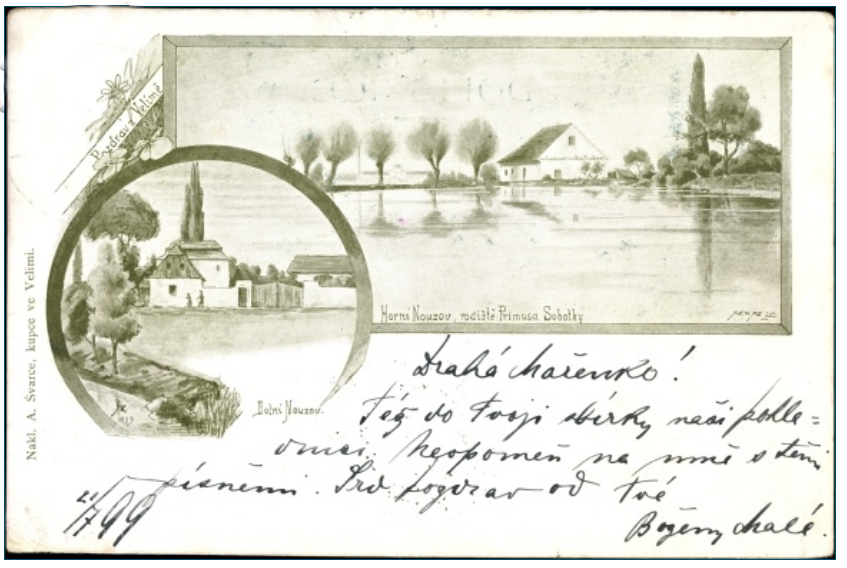 Pozdrav z Velimě
Horní Nouzov, rodiště Primusa Sobotky
Dolní Nouzov.
1899
Nakl. A. Švarce, kupce ve Velimi.
Drahá Mařenko!
Též do Tvojí sbírky naši pohle=
dnici. Neopomeň na mně s těmi
písněmi. Srd. pozdrav od Tvé
Boženy Malé.
/7 99